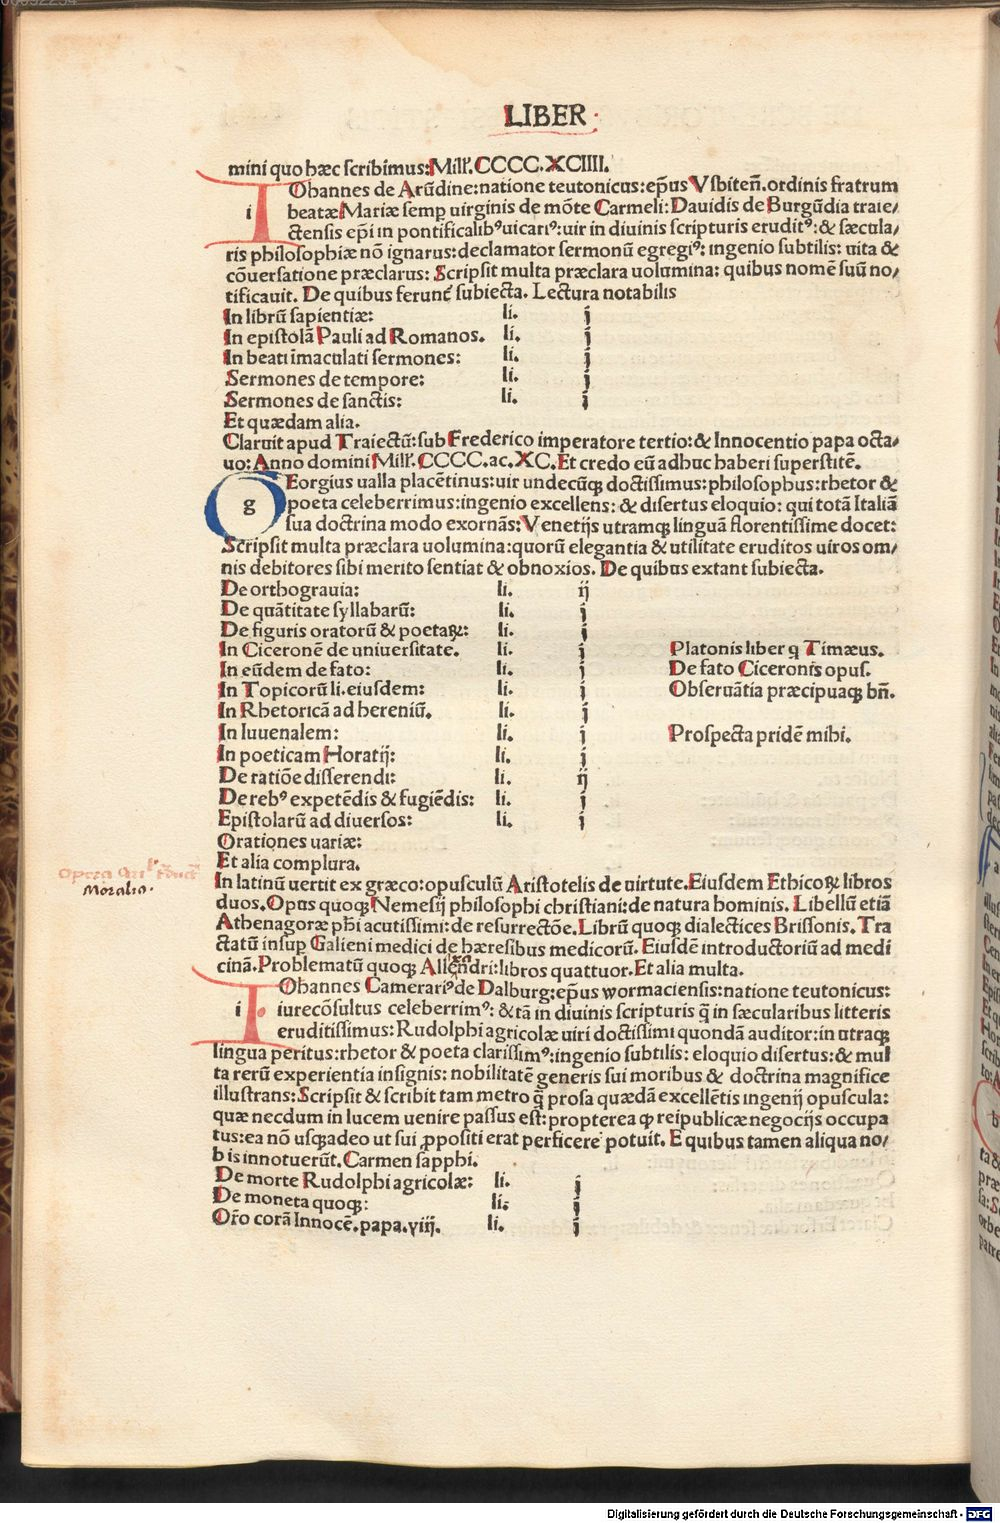 LIBER
mini quo hæc scribimus: Mill'. CCCC.XCIIII.
IOhannes de Arũdine: natione teutonicus: ep̃us Vsbiteñ. ordinis fratrum
i beatæ Mariæ semp uirginis de mõte Carmeli: Dauidis de Burgũdia traie/
ctensis ep̃i in pontificalibꝰ uicariꝰ: uir in diuinis scripturis eruditꝰ: & sæcula/
ris philosophiæ nõ ignarus: declamator sermonũ egregiꝰ: ingenio subtilis: uita &
cõuersatione præclarus: Scripsit multa præclara uolumina: quibus nomẽ suũ no/
tificauit. De quibus ferunt̃ subiecta. Lectura notabilis
In librũ sapientiæ: li. j
In epistolã Pauli ad Romanos. li. j
In beati ĩmaculati sermones: li. j
Sermones de tempore: li. j
Sermones de sanctis: li. j
Et quædam alia.
Claruit apud Traiectũ: sub Frederico imperatore tertio: & Innocentio papa octa/
uo: Anno domini Mill'. CCCC. ac. XC. Et credo eũ adhuc haberi superstitẽ.
GEorgius ualla placẽtinus: uir undecũqꝫ doctissimus: philosophus: rhetor &
g poeta celeberrimus: ingenio excellens: & disertus eloquio: qui totã Italiã
sua doctrina modo exornãs: Venetijs utramqꝫ linguã florentissime docet:
Scripsit multa præclara uolumina: quorũ elegantia & utilitate eruditos uiros om/
nis debitores sibi merito sentiat & obnoxios. De quibus extant subiecta.
De orthograuia: li. ij
De quãtitate syllabarũ: li. j
De figuris oratorũ & poetaꝝ: li. j
In Ciceronẽ de uniuersitate. li. j Platonis liber q̨ Timæus.
In eũdem de fato: li. j De fato Ciceronis opus.
In Topicorũ li. eiusdem: li. j Obseruãtia præcipuaqꝫ bñ.
In Rhetoricã ad hereniũ. li. j
In Iuuenalem: li. j Prospecta pridẽ mihi.
In poeticam Horatij: li. j
De ratiõe disserendi: li. ij
De rebꝰ expetẽdis & fugiẽdis: li. j
Epistolarũ ad diuersos: li. j
Orationes uariæ:
Et alia complura.
Moralia.
In latinũ uertit ex græco: opusculũ Aristotelis de uirtute. Eiusdem Ethicoꝝ libros
duos. Opus quoqꝫ Nemesij philosophi christiani: de natura hominis. Libellũ etiã
Athenagoræ ph̃i acutissimi: de resurrectõe. Librũ quoqꝫ dialectices Brissonis. Tra
ctatũ insup Galieni medici de hæresibus medicorũ. Eiusdẽ introductoriũ ad medi
cinã. Problematũ quoqꝫ Allexandri: libros quattuor. Et alia multa.
IOhannes Camerariꝰ de Dalburg: ep̃us wormaciensis: natione teutonicus:
i iurecõsultus celeberrimꝰ: & tã in diuinis scripturis q̃ in sæcularibus litteris
eruditissimus: Rudolphi agricolæ uiri doctissimi quondã auditor: in utraqꝫ
lingua peritus: rhetor & poeta clarissimꝰ: ingenio subtilis: eloquio disertus: & mul
ta rerũ experientia insignis: nobilitatẽ generis sui moribus & doctrina magnifice
illustrans: Scripsit & scribit tam metro q̃ prosa quædã excellẽtis ingenij opuscula:
quæ necdum in lucem uenire passus est: propterea ꝙ reipublicæ negocijs occupa
tus: ea nõ usqꝫadeo ut sui ꝓpositi erat perficere potuit. E quibus tamen aliqua no/
bis innotuerũt. Carmen sapphi.
De morte Rudolphi agricolæ: li. j
De moneta quoqꝫ: li. j
Or̃o corã Innocẽ. papa. viij. li. j
Digitalisierung gefördert durch die Deutsche Forschungsgemeinschaft - DFG